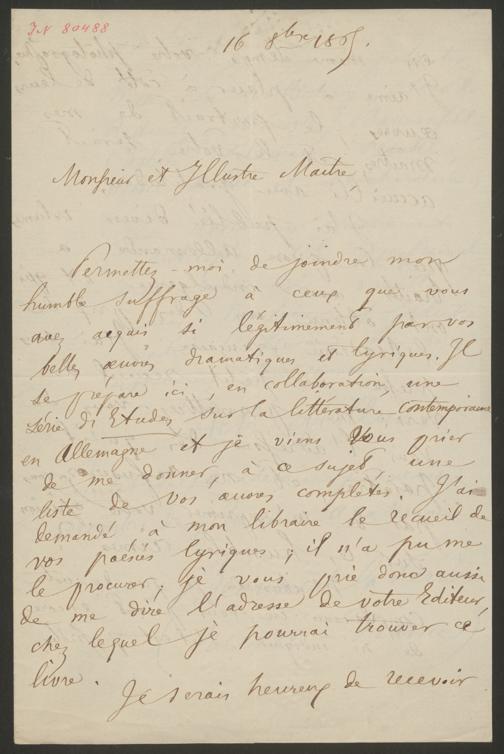 IN 80488
16 8bre 1865.
Monsieur et Illustre Maitre
Permettez-moi de joindre mon
humble suffrage à ceux que vous
avez acquis si légitimement par vos
belles œuvres dramatiques et lyriques. Il
se prépare ici, en collaboration, une
série d'Etudes sur la littérature contemporaine
en Allemagne et je viens Vous prier
de me donner, à ce sujet, une
liste de vos œuvres complètes. J'ai
demandé à mon libraire le recueil de
vos poésies lyriques; il n'a pu me
le procurer; je vous prie donc aussi
de me dire l'adresse de votre Editeur,
chez lequel je pourrai trouver ce
livre.
Je serais heureux de recevoir